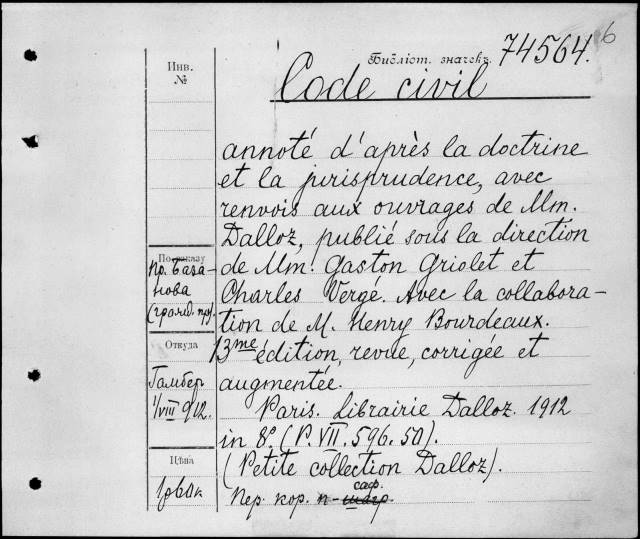 Библіот. значекъ 74564. 6
Инв.
№
Code civil
annoté d'après la doctrine
et la jurisprudence, avec
renvois aux ouvrages de Mm.
Dalloz, publié sous la direction
de Mm. Gaston Griolet et
Charles Vergé. Avec la collabora-
tion de M. Henry Bourdeaux.
13me édition, revue, corrigée et
augmentée.
Paris. Librairie Dalloz. 1912
in 8º. (P. VII. 596. 50).
(Petite collection Dalloz).
Пер. кор. п-шагр. саф.
По заказу
Пр. База-
нова
(гражд. пр).
Откуда
Гамбер
1/VIII 912.
Цѣна
1р60к